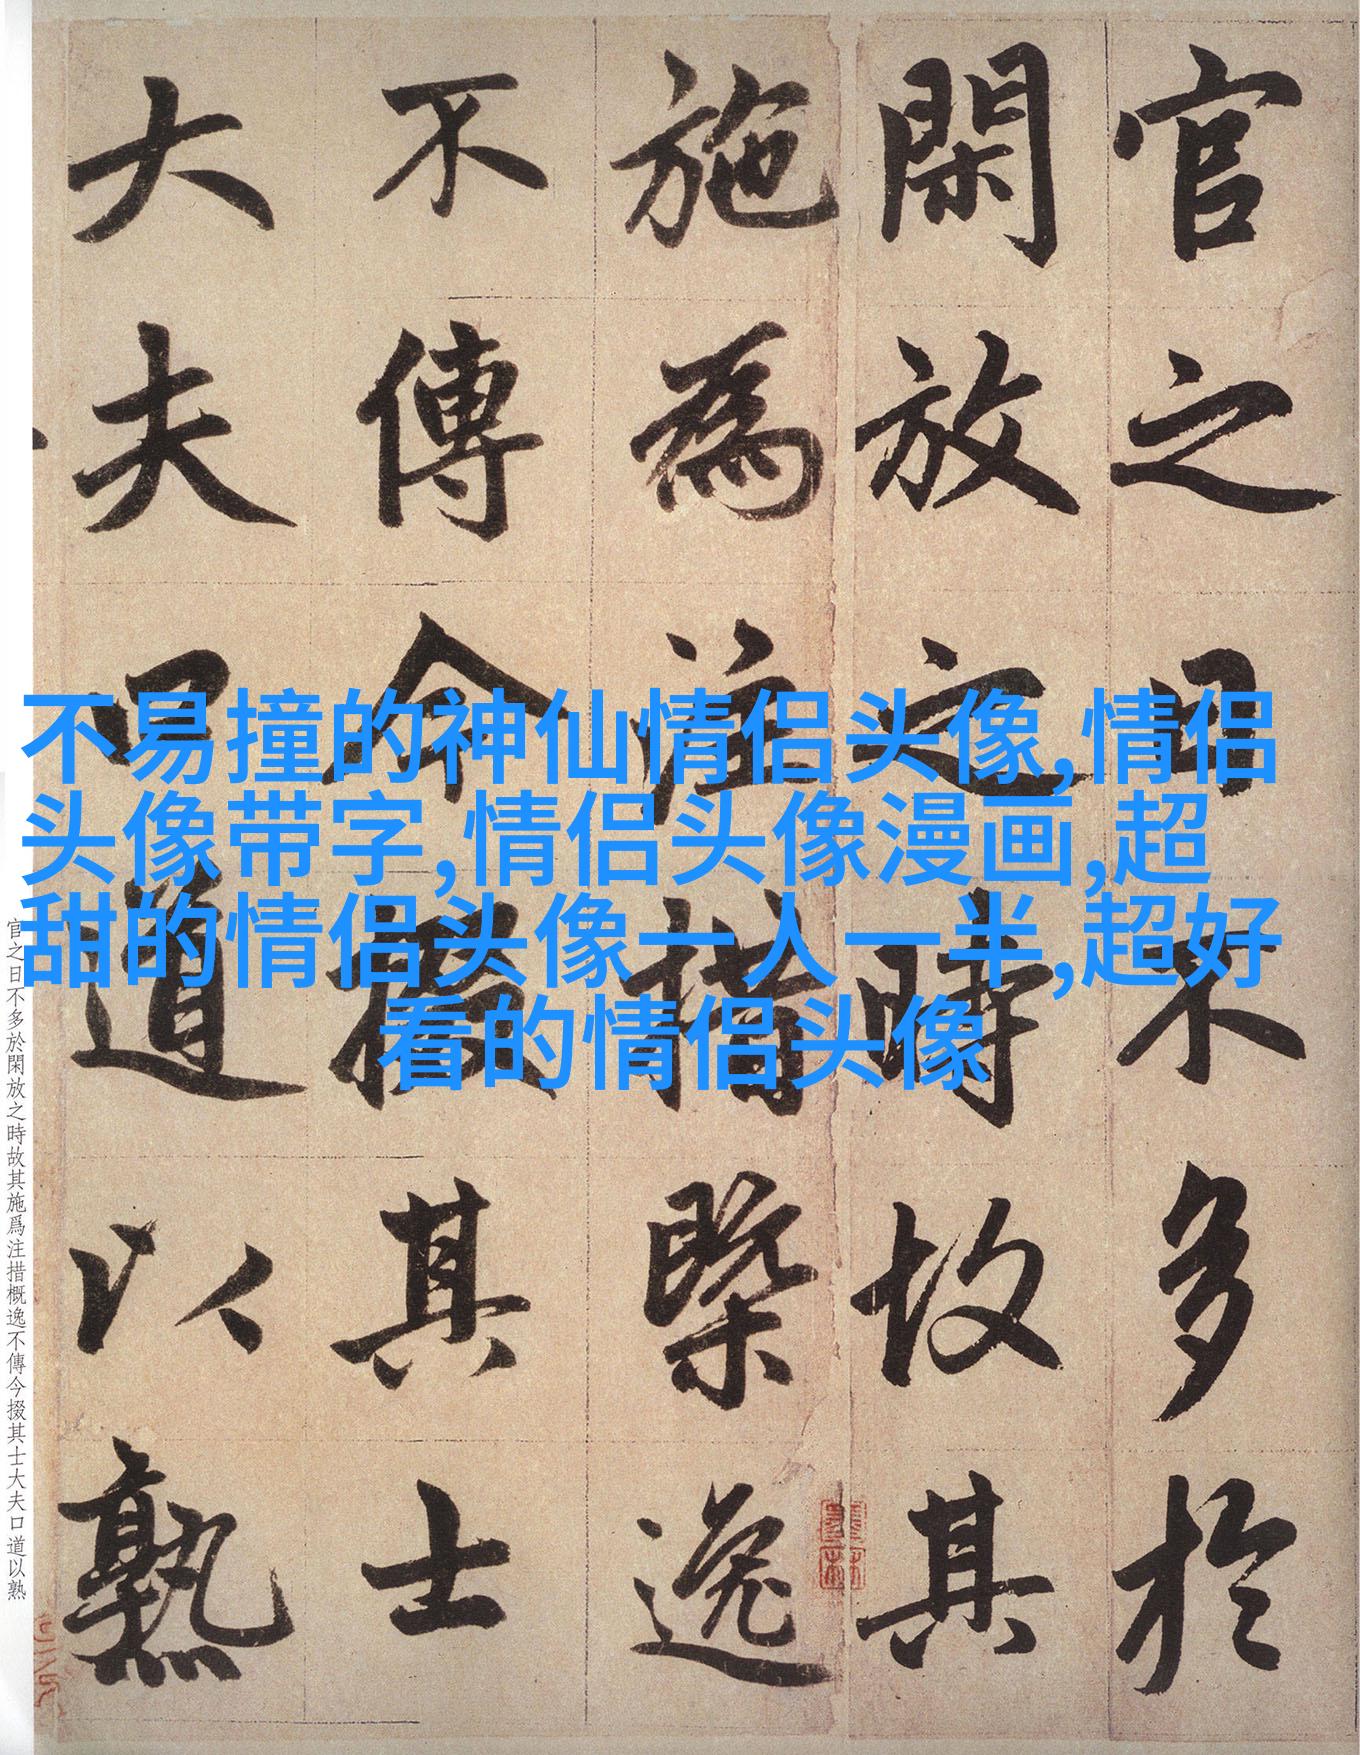 官之日不多於
閑放之時故其
施為注措槩逸
不傳今掇其士
大夫口道以熟
不易撞的神仙情侣头像,情侣
头像带字,情侣头像漫画,超
甜的情侣头像一人一半,超好
看的情侣头像
官之日不多於閑放之時故其施爲注措概逸不傳今掇其士大夫口道以熟